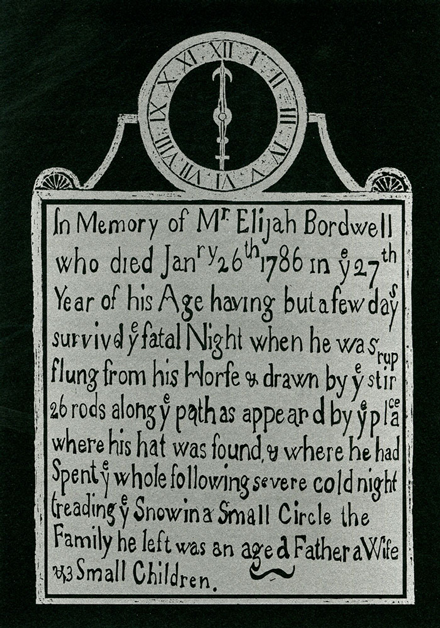 XII I II III IV V VI VII VIII IX X XI
In Memory of Mr Elijah Bordwell
who died Janry 26th 1786 in ye 27th
Year of his Age having but a few days
survivd ye fatal Night when he was
flung from his Horse & drawn by ye stirrup
26 rods along ye path as appeard by ye place
where his hat was found, & where he had
Spent ye whole following severe cold night
treading ye Snow in a Small Circle the
Family he left was an aged Father a Wife
& 3 Small Children.